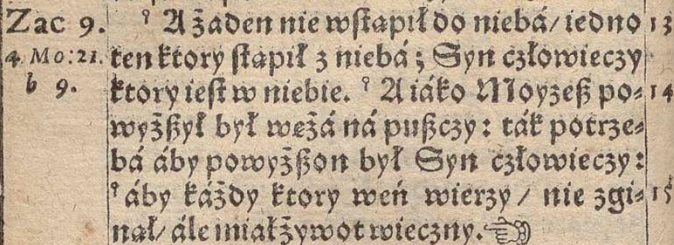 Zac 9. ꝰ A żaden nie wstąpił do niebá/ iedno 13
4. Mo: 21. ten ktory stąpił z niebá; Syn człowieczy
b 9. ktory iest w niebie. ꝰ A iáko Moyzesz po⸗ 14
wyższył był wężá ná puszczy: ták potrze⸗
bá áby powyższon był Syn człowieczy:
ꝰ áby káżdy ktory weń wierzy/ nie zgi⸗ 15
nął/ ále miał żywot wieczny. ☜